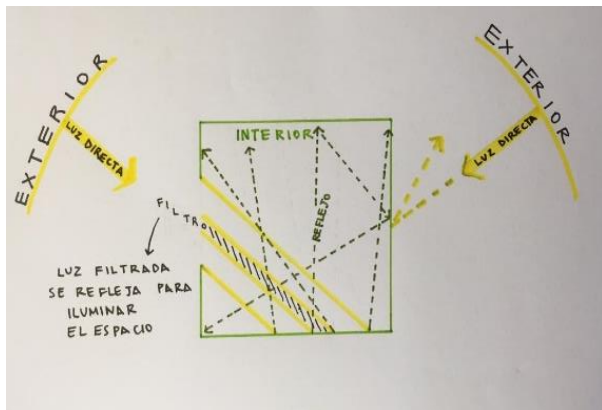 EXTERIOR
LUZ DIRECTA
INTERIOR
EXTERIOR
LUZ DIRECTA
FILTRO
REFLEJO
LUZ FILTRADA
SE REFLEJA PARA
ILUMINAR
EL ESPACIO